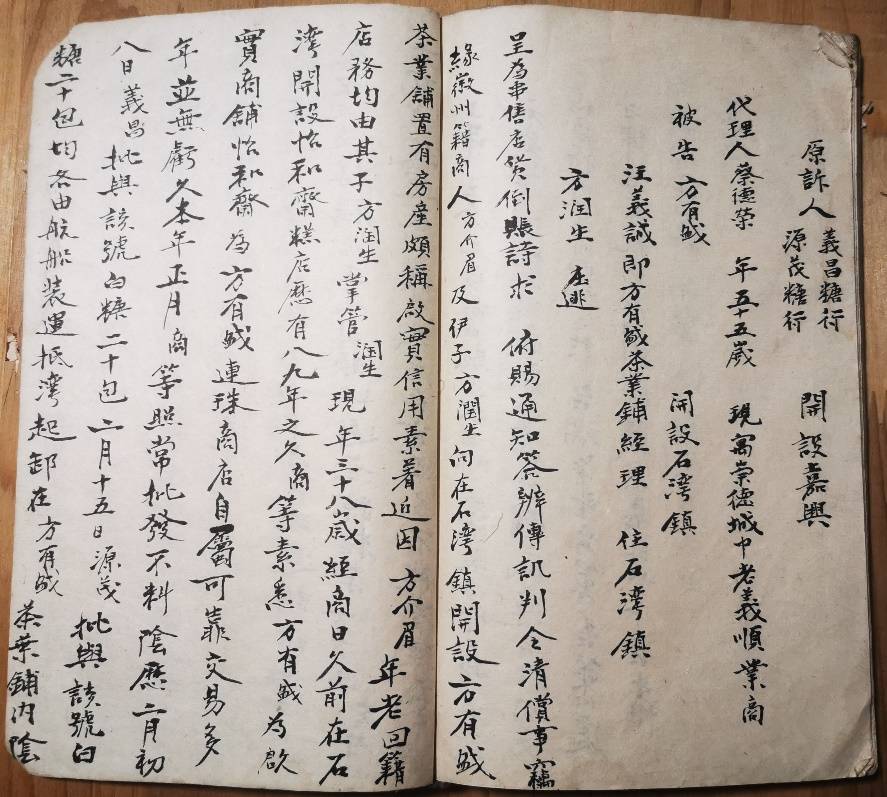 原訴人 義昌糖行 開設嘉興
源茂糖行
代理人蔡德榮 年五十五歲 現寓崇德城中老義順業商
被告 方有誠 開設石灣鎮
汪義誠即方有誠茶業鋪經理 住石灣鎮
方润生 在逃
呈為串售店貨倒賬請求 俯賜通知答辨傳訊判令清償事竊
緣徽州籍商人方介眉及伊子方潤生向在石灣鎮開設方有誠
茶業舖置有房產頗稱啟實信用素著近因方介眉年老回籍
店務均由其子方润生掌管润生現年三十八歲經商日久前在石
灣開設怡和齋糕店應有八九年之久商等素悉方有誠為啟
實商舖怡和齋為方有誠連珠商店自屬可靠交易多
年並無虧欠本年正月商等照常批發不料陰應二月初
八日義昌批與該號白糖二十包二月十五日源茂批與該號白
糖二十包均各由航船裝運抵灣起卸在方有誠茶葉鋪內陰